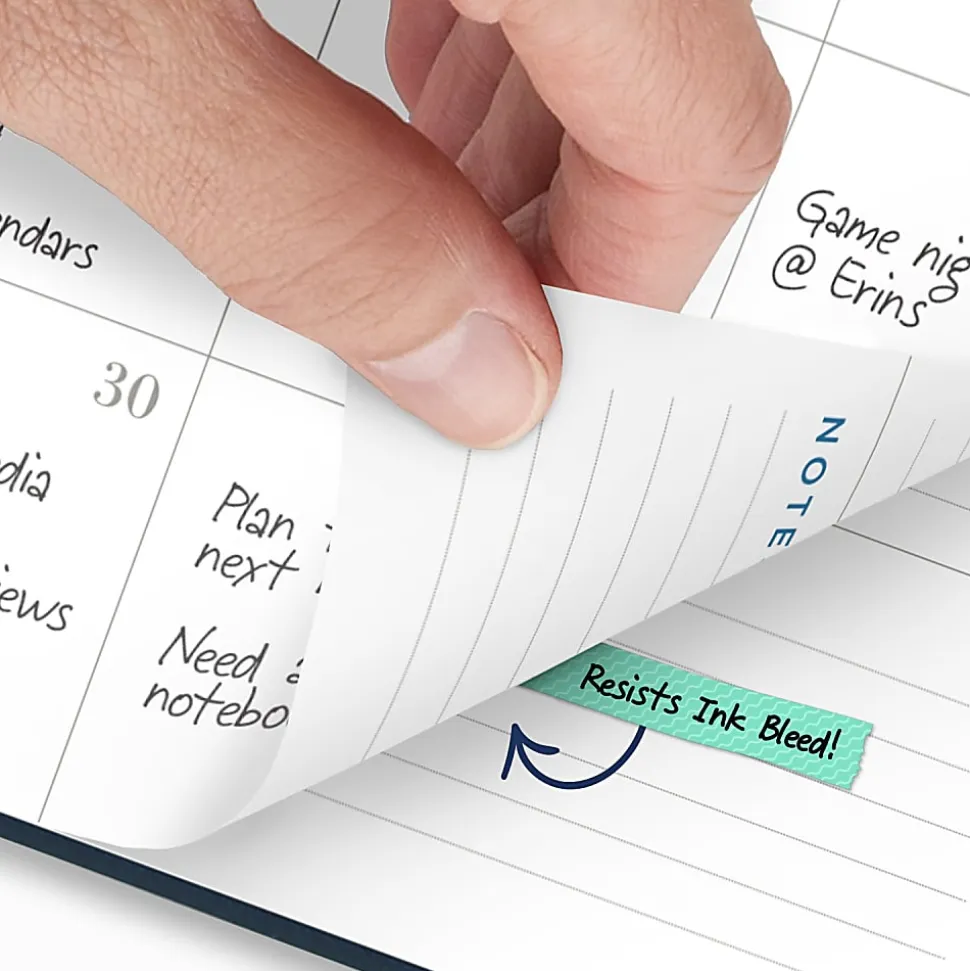 Game nig
@ Erins
ndars
30
dia
iews
Plan
next
Need a
notebo
NOTE
Resists Ink Bleed!